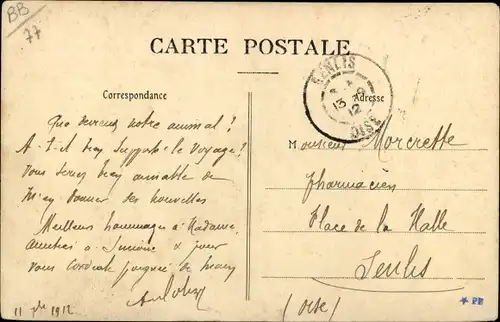 BB
77
CARTE POSTALE
Correspondance
Adresse
SENLIS
13 - 9
12
OISE
Que devient notre animal?
A-t-il bien supporté le voyage?
Vous seriez bien aimable de
m'en donner des nouvelles
Meilleurs hommages à Madame,
amitiés à Simone & pour
vous cordiale poignée de main
11 7bre 1912
Monsieur Morcrette
pharmacien
Place de la Halle
Senlis
(Oise)